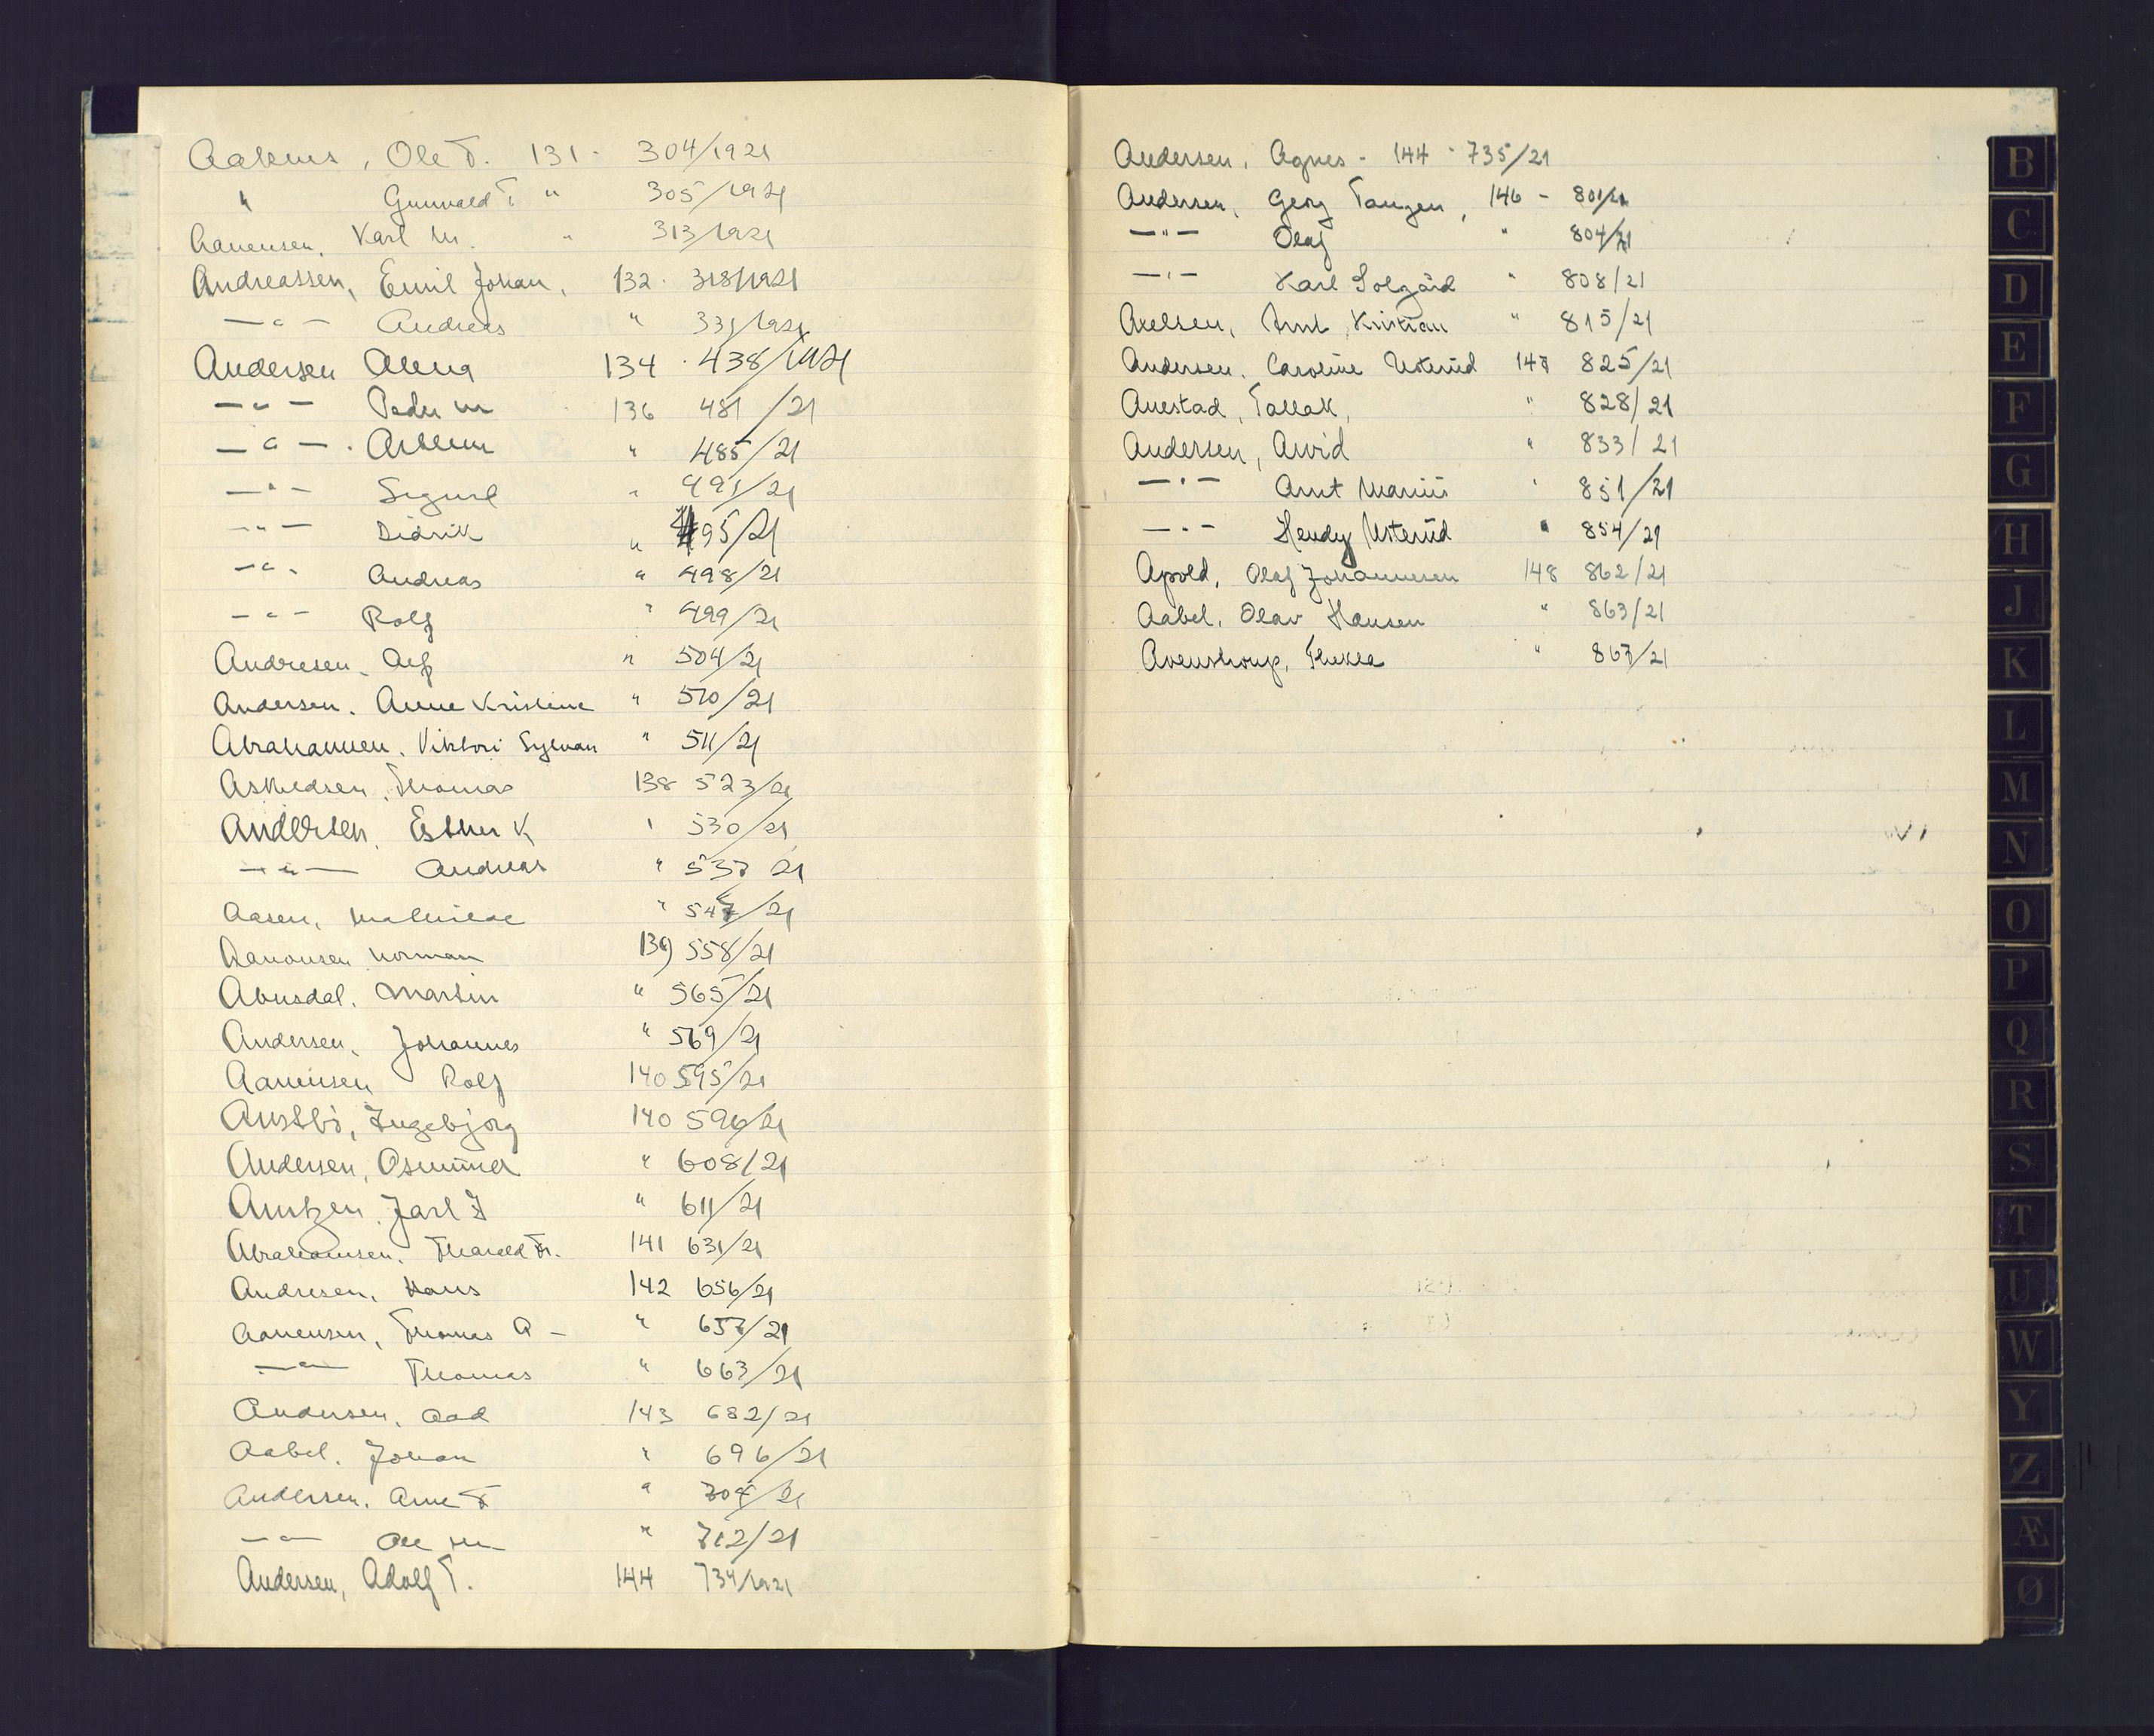 Aakens, Ole T. 131 - 304/1921
" Gunvald T. " 305/1921
Aanensen, Karl M. " 313/1921
Andreassen, Emil Johan, 132 - 318/1921
— " — Andreas " 331/1921
Andersen Alena 134 - 438/1921
— " — Peder M 136 481/21
— " — Arthur " 485/21
— " — Sigurd " 491/21
— " — Didrik " 495/21
— " — Andreas " 498/21
— " — Rolf " 499/21
Andresen, Alf " 504/21
Andersen, Anne Kristine " 510/21
Abrahamsen, Viktori Sylvan " 511/21
Askildsen, Thomas 138 523/21
Andersen, Esther K " 530/21
— " — Andreas " 537 21
Aasen, Mathilde " 547/21
Aanonsen Norman 139 558/21
Abusdal, Martin " 565/21
Andersen, Johannes " 569/21
Aanensen Rolf 140 595/21
Austbö, Ingebjörg 140 596/21
Andersen, Osmund " 608/21
Arntzen, Jarl I " 611/21
Abrahamsen, Tharald Fr. 141 631/21
Andresen, Hans 142 656/21
Aanensen, Thomas A - " 657/21
— " — Thomas " 663/21
Andersen, Aad 143 682/21
Aabel, Johan " 696/21
Andersen, Arne T " 704/21
— " — Ole M — " 712/21
Andersen, Adolf T. 144 734/1921
Andersen, Agnes - 144 - 735/21
Andersen, Georg Tangen, 146 - 801/21
— " — Olaf " 804/21
— " — Karl Solgård " 808/21
Axelsen, Arnt Kristian " 815/21
Andersen, Caroline Usterud 147 825/21
Auestad, Tallak, " 828/21
Andersen, Arvid " 833/21
— " — Arnt Marius " 851/21
— " — Hendy Usterud " 854/21
Apold, Olaf Johannesen 148 862/21
Aabel, Olav Hansen " 863/21
Avenstroup, Thekla " 867/21
B
C
D
E
F
G
H
J
K
L
M
N
O
P
Q
R
S
T
U
W
Y
Z
Æ
Ø